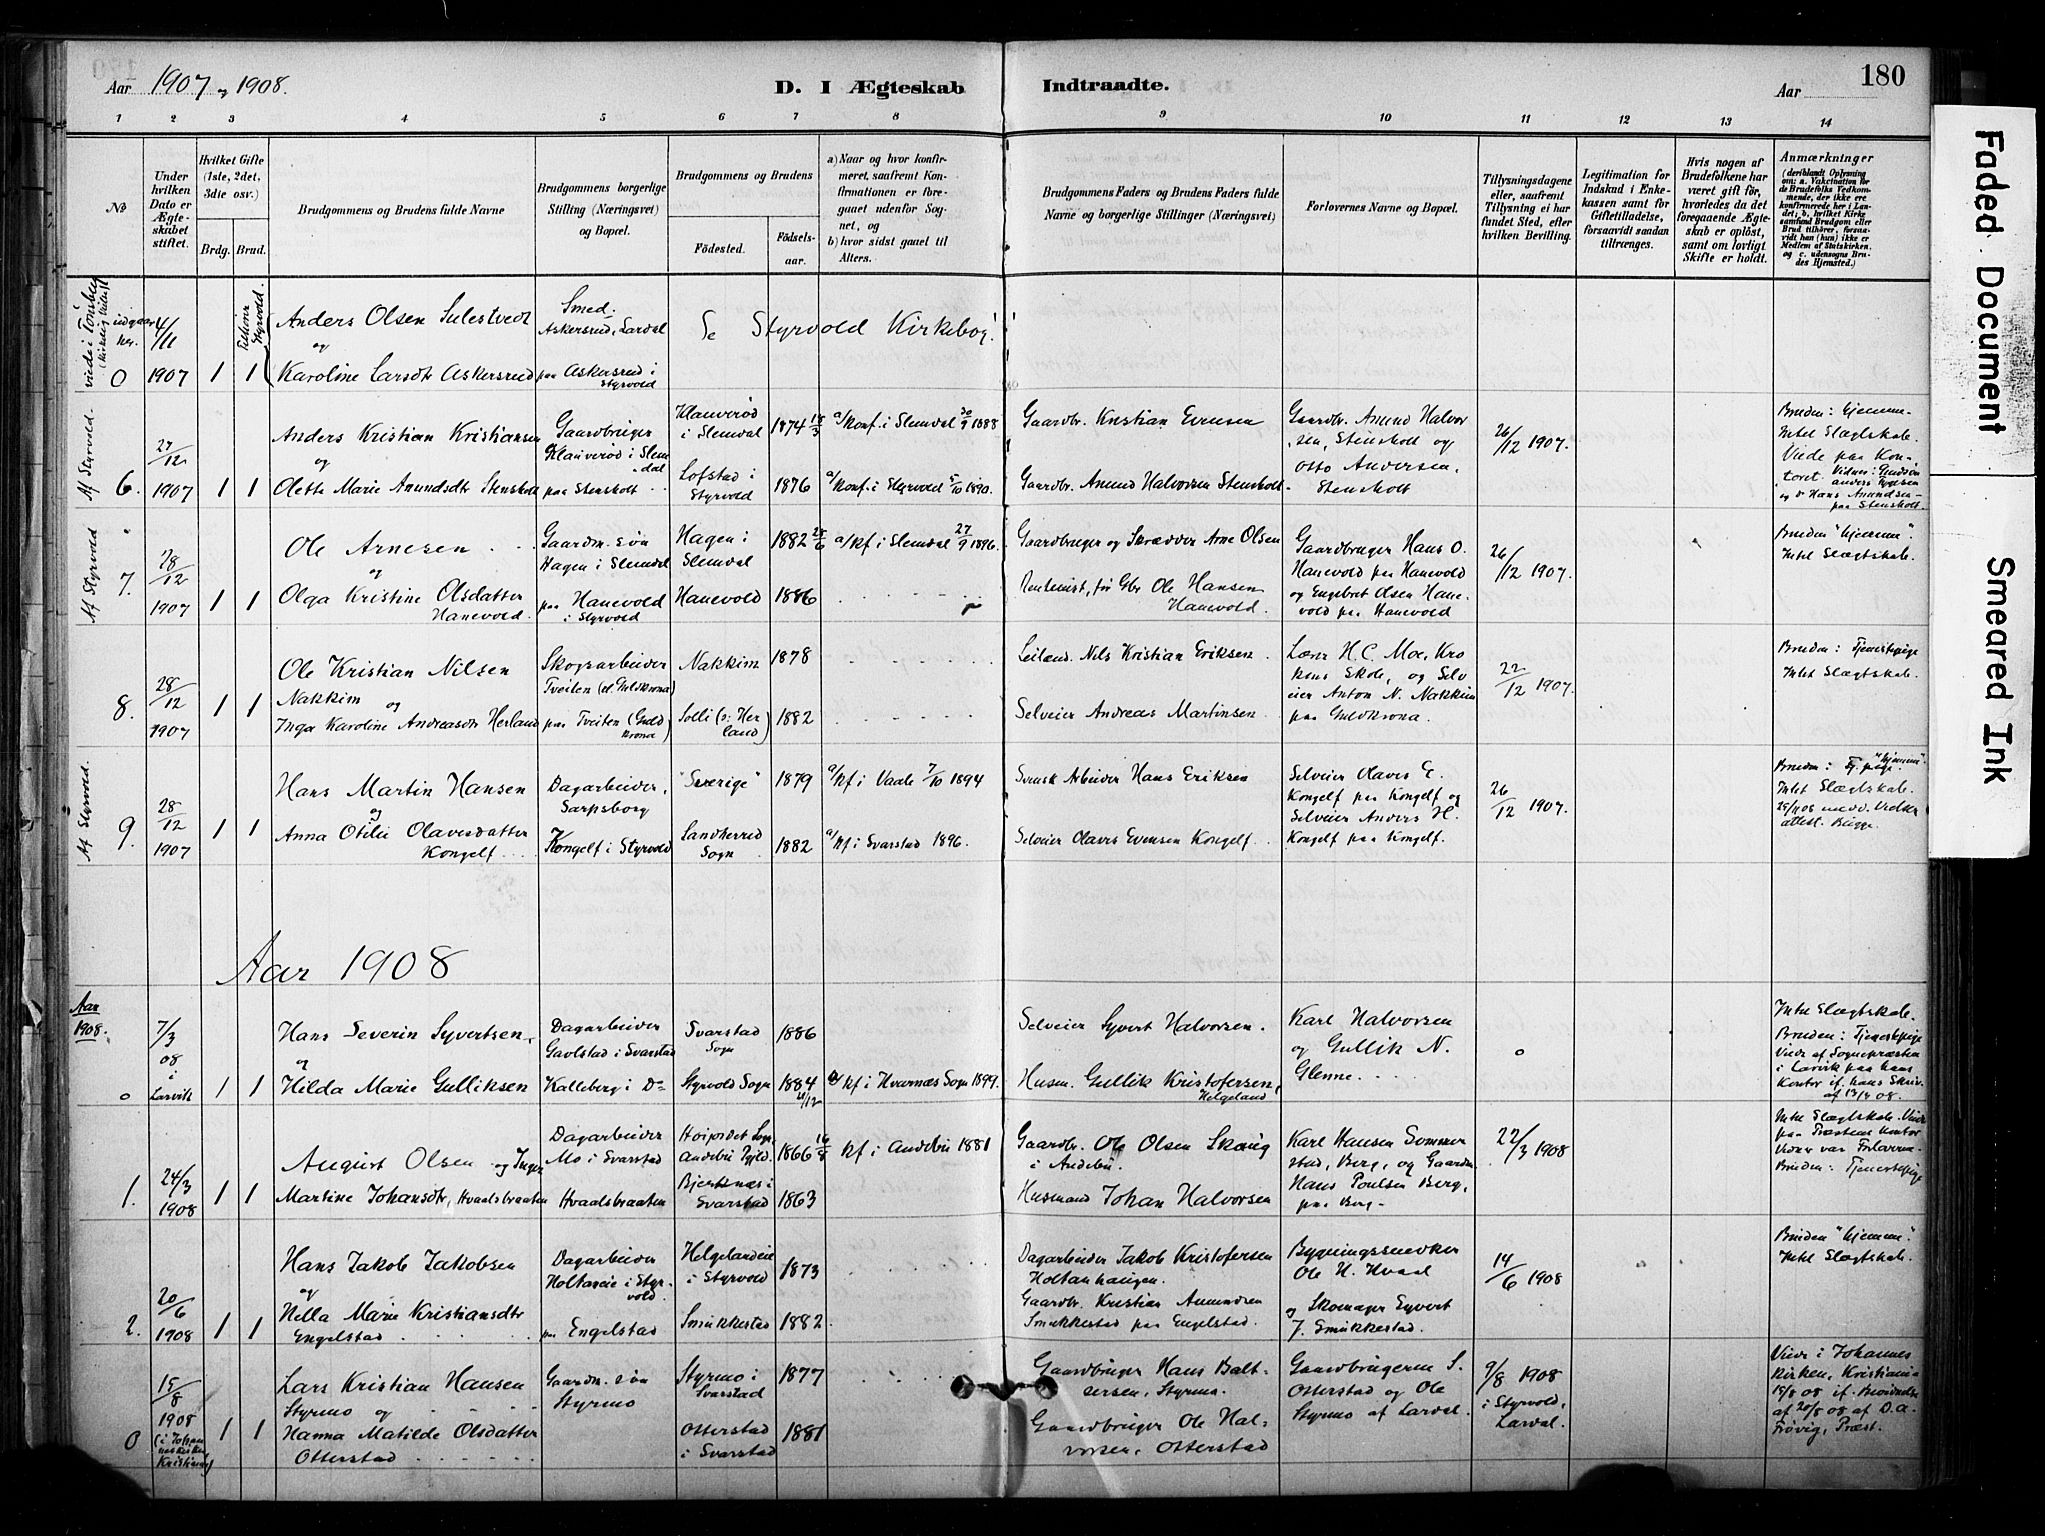 180
Aar 1907 og 1908.
D. I Ægteskab Indtraadte.
Aar
1 2 3 4 5 6 7 8 9 10 11 12 13 14
No
Under hvilken Dato er Ægteskabet stiftet.
Hvilket Gifte (1ste, 2det, 3die osv.)
Brdg. Brud.
Brudgommens og Brudens fulde Navne
Brudgommens borgerlige Stilling (Næringsvei) og Bopæl.
Brudgommens og Brudens
Fødested.
Fødselsaar.
a) Naar og hvor konfirmeret, saafremt Konfirmationen er foregaaet udenfor Sognet, og
b) hvor sidst gaaet til Alters.
Brudgommens Faders og Brudens Faders fulde Navne og borgerlige Stillinger (Næringsvei)
Forlovernes Navne og Bopæl.
Tillysningsdagene eller, saafremt Tillysning ei har fundet Sted, efter hvilken Bevilling.
Legitimation for Indskud i Enkekassen samt for Giftetilladelse, forsaavidt saadan tiltrænges.
Hvis nogen af Brudefolkene har været gift før, hvorledes da det foregaaende Ægteskab er opløst, samt om lovligt Skifte er holdt.
Anmærkninger
(deriblandt Oplysning om: a. Vaccination for de Brudefolks Vedkommende, der ikke ere konfirmerede her i Landet; b. hvilket Kirkesamfund Brudgom eller Brud tilhører, forsaavidt han (hun) ikke er Medlem af Statskirken, og c. udensogns Brudes Hjemsted.)
viede i Tønsberg
0
4/11 1907
1 1
Anders Olsen Sulestvedt
og
Karoline Larsdtr Askersrud
Smed.
Askersrud, Lardal
paa Askersrud i Styrvold
Se Styrvold Kirkebog!
Af Styrvold.
6.
27/12 1907
1 1
Anders Kristian Kristiansen
og
Olette Marie Amundsdtr Stensholt
Gaardbruger
Klauverød i Slemdal
paa Stensholt
Klauverød i Slemdal
Lofstad i Styrvold
1874 18/3
1876
a/ Konf. i Slemdal 30/9 1888
a/ Konf. i Styrvold 5/10 1890.
Gaardbr. Kristian Evensen
Gaardbr. Amund Halvorsen Stensholt
Gaardbr. Amund Halvorsen, Stensholt og
Otto Andersen, Stensholt
26/12 1907.
Bruden: hjemme.
Intet Slægtskab.
Viede paa Kontoret.
Hans Amundsen
paa Stensholt.
Af Styrvold
7.
28/12 1907
1 1
Ole Arnesen
og
Olga Kristine Olsdatter
Hanevold.
Gaardm. søn
Hagen i Slemdal
paa Hanevold
i Styrvold
Hagen i Slemdal
Hanevold
1882 25/6
1886
a/ kf i Slemdal 27/9 1896.
Gaardbruger og Skrædder Arne Olsen
Rentenist, før Gbr Ole Hansen
Hanevold.
Gaardbruger Hans O.
Hanevold paa Hanevold
og Engebret Olsen Hanevold paa Hanevold
26/12 1907.
Bruden "hjemme".
Intet Slægtskab.
8.
28/12 1907
1 1
Ole Kristian Nilsen
Nakkim
og
Inga Karoline Andreasdtr Herland
Skogsarbeider
Tveiten (el. Guldkrona)
paa Tveiten (Guldkrona)
Nakkim
Solli (o: Herland)
1878
1882
Leilænd. Nils Kristian Eriksen
Selveier Andreas Martinsen
Lærer H. C. Moe, Krokens Skole, og Selveier Anton N. Nakkim
paa Guldkrona.
22/12 1907.
Bruden: Tjenestepige
Intet Slægtskab.
Af Styrvold.
9.
28/12 1907
1 1
Hans Martin Hansen
og
Anna Otilie Olavesdatter
Kongelf
Dagarbeider,
Sarpsborg
Kongelf i Styrvold
"Sverige"
Sandherred Sogn
1879
1882
a/ kf i Vaale 7/10 1894
a/ kf i Svarstad 1896.
Svensk Arbeider Hans Eriksen
Selveier Olaves Evensen Kongelf
Selveier Olaves E.
Kongelf paa Kongelf og
Selveier Anders H.
Kongelf paa Kongelf.
26/12 1907.
Bruden: Tj. pige "hjemme".
Intet Slægtskab.
Aar 1908
Aar 1908.
0
7/3 08 i Larvik
1 1
Hans Severin Syvertsen,
og
Hilda Marie Gulliksen
Dagarbeider
Gavlstad i Svarstad
Kalleberg i Do
Svarstad Sogn
Styrvold Sogn
1886
1884
a/ kf i Hvarnæs Sogn 1899.
Selveier Syvert Halvorsen.
Husm. Gullik Kristofersen,
Helgeland
Karl Halvorsen
og Gullik N.
Glenne.
0
Intet Slægtskab.
Bruden: Tjenestepige
Viede af Sognepræsten
i Larvik paa hans
Kontor if. hans Skriv.
1.
24/3 1908
1 1
August Olsen og Inger
Martine Johansdtr, Hvaalsbraaten
Dagarbeider
Mo i Svarstad
Hvaalsbraaten
Høijordet Sogn,
Andebu Pgjld.
Bjertnæs i Svarstad
1866 16/8
1863
kf i Andebu 1881
Gaardbr. Ole Olsen Skoug
i Andebu.
Husmand Johan Halvorsen
Karl Hansen Sommerstad, Berg, og Gaardm.
Hans Poulsen Berg,
paa Berg.
22/3 1908
Intet Slægtskab. Viede
paa Præstens Kontor
Vidner var Forloverne
Bruden: Tjenestepige
2.
20/6 1908
1 1
Hans Jakob Jakobsen
og
Nella Marie Kristiansdtr
Engelstad
Dagarbeider
Holtaneie i Styrvold.
paa Engelstad
Helgelandeie
i Styrvold
Smukkestad
1873
1882
Dagarbeider Jakob Kristofersen
Holtanhaugen.
Gaardbr. Kristian Amundsen
Smukkestad paa Engelstad.
Bygningssnedker
Ole H. Hvaal
og Skomager Syvert
J. Smukkestad.
14/6 1908
Bruden "hjemme".
Intet Slægtskab.
0
15/8 1908
(i Johanneskirken Kristiania)
1 1
Lars Kristian Hansen
Styrmo og
Hanna Matilde Olsdatter
Otterstad
Gaardm. søn
Styrmo
Styrmo i Svarstad
Otterstad i Svarstad
1877
1881
Gaardbruger Hans Baltsersen, Styrmo.
Gaardbruger Ole Halvorsen, Otterstad
Gaardbrugerne S.
Otterstad og Ole
Styrmo af Lardal.
9/8 1908
i Styrvold,
Lardal.
Viede i Johannes
Kirken, Kristiania
15/8 08 if. Meddelelse
af 20/8 08 af D. A.
Frøvig, Præst.
Faded Document
Smeared Ink